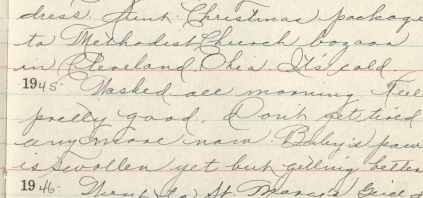 dress. Sent Christmas package
to Methodist Church bazaar
in Cleveland, Ohio. It's cold.
1945- Washed all morning. Feel
pretty good. Don't get tired
any more now. Baby's paw
is swollen yet but getting better
1946- Went to St. Marie's Guild